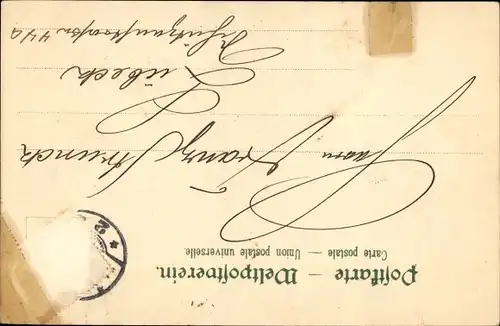 Postkarte — Weltpostverein.
Carte postale — Union postale universelle.
Herrn Franz Strunck
Lübeck
44a